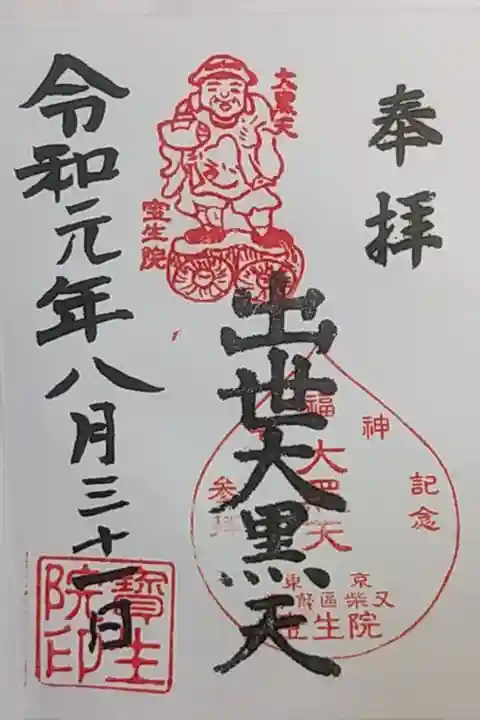 奉拝
大黒天
宝生院
出世大黒天
福神
記念
参拝
大黒天
東京
葛飾區柴又
宝生院
令和元年八月三十一日
寶生院印